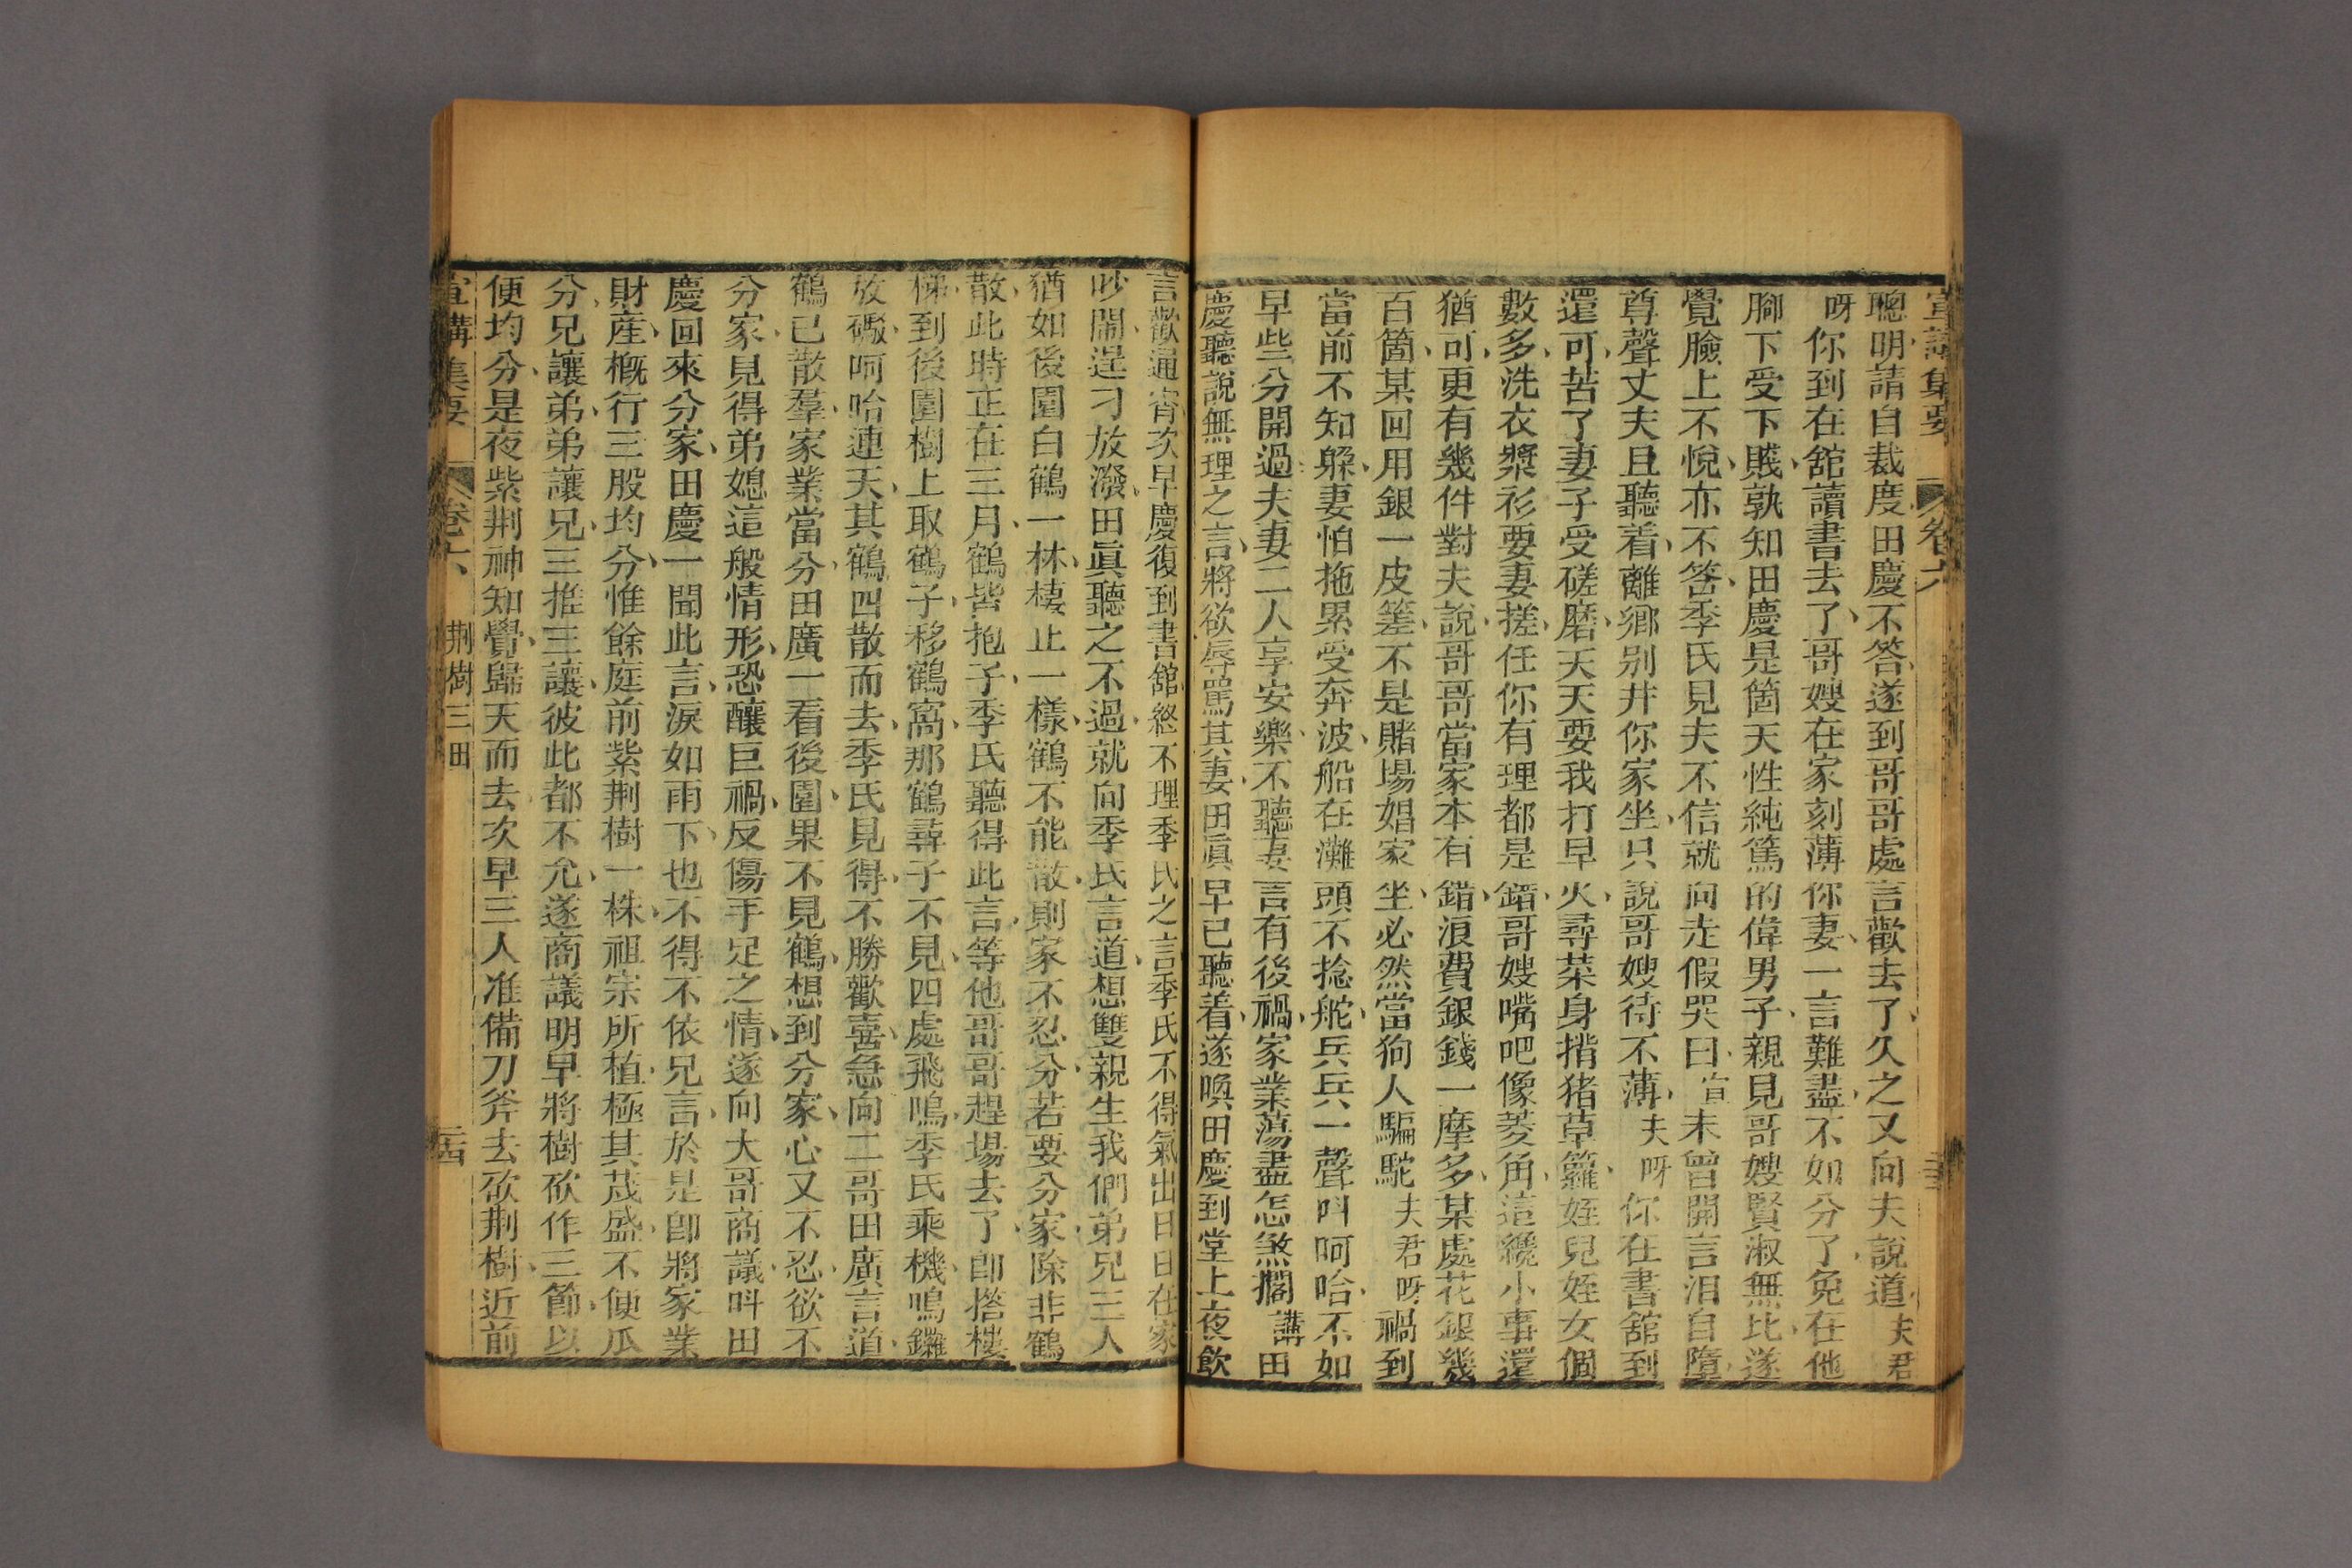 宣講集要 卷六
聰明請自裁度田慶不答遂到哥哥處言歡去了久之又向夫說道夫君
呀你到在舘讀書去了哥嫂在家刻薄你妻一言難盡不如分了免在他
腳下受下賤孰知田慶是箇天性純篤的偉男子親見哥嫂賢淑無比遂
覺臉上不悅亦不答季氏見夫不信就向走假哭曰宣未曾開言泪自墮
尊聲丈夫且聽着離鄉别井你家坐只說哥嫂待不薄夫呀你在書舘到
還可苦了妻子受磋磨天天要我打早火尋菜身揹猪草籮姪兒姪女個
數多洗衣漿衫要妻搓任你有理都是錯哥嫂嘴吧像菱角這纔小事還
猶可更有幾件對夫說哥哥當家本有錯浪費銀錢一摩多某處花銀幾
百箇某回用銀一皮籮不是賭場娼家坐必然當狗人騙駝夫君呀禍到
當前不知躱妻怕拖累受奔波船在灘頭不捻舵兵兵一聲呌呵哈不如
早些分開過夫妻二人享安樂不聽妻言有後禍家業蕩盡怎煞擱講田
慶聽說無理之言將欲辱罵其妻田眞早已聽着遂喚田慶到堂上夜飲
言歡通宵次早慶復到書舘終不理季氏之言季氏不得氣出日日在家
吵鬧逞刁放潑田眞聽之不過就向季氏言道想雙親生我們弟兄三人
猶如後園白鶴一林棲止一樣鶴不能散則家不忍分若要分家除非鶴
散此時正在三月鶴皆抱子季氏聽得此言等他哥哥趕場去了卽搭樓
梯到後園樹上取鶴子移鶴窩那鶴尋子不見四處飛鳴季氏乘機鳴鑼
放礮呵哈連天其鶴四散而去季氏見得不勝歡喜急向二哥田廣言道
鶴已散羣家業當分田廣一看後園果不見鶴想到分家心又不忍欲不
分家見得弟媳這般情形恐釀巨禍反傷手足之情遂向大哥商議呌田
慶回來分家田慶一聞此言淚如雨下也不得不依兄言於是卽將家業
財産概行三股均分惟餘庭前紫荆樹一株祖宗所植極其茂盛不便瓜
分兄讓弟弟讓兄三推三讓彼此都不允遂商議明早將樹砍作三節以
便均分是夜紫荆神知覺歸天而去次早三人准備刀斧去砍荆樹近前
宣講集要 卷六 荆樹三田